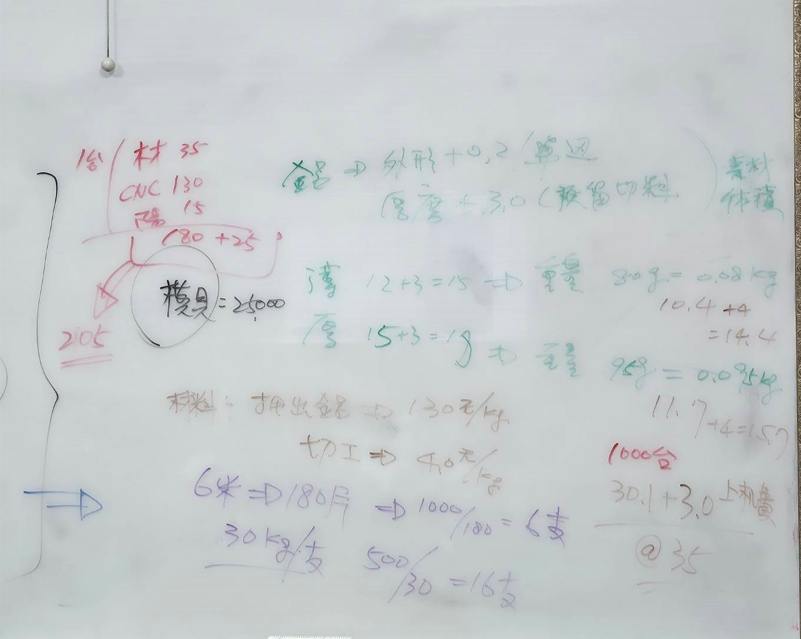 1台 材 35
CNC 130
陽 15
180 + 25
205
模具 = 25,000
鋁 ⇒ 外形 + 0.2 / 單邊
厚度 + 3.0 (預留切料
素料
体積
薄 12+3=15 ⇒ 重量 80g = 0.08kg
10.4 + 4
= 14.4
厚 15+3=18 ⇒ 重量 95g = 0.095kg
11.7 + 4 = 15.7
材料: 押出鋁 ⇒ 130元/kg
切工 ⇒ 4.0元/kg
1000台
30.1 + 3.0 上機費
@ 35
6米 ⇒ 180片 ⇒ 1000/180 = 6支
30kg/支
500/30 = 16支